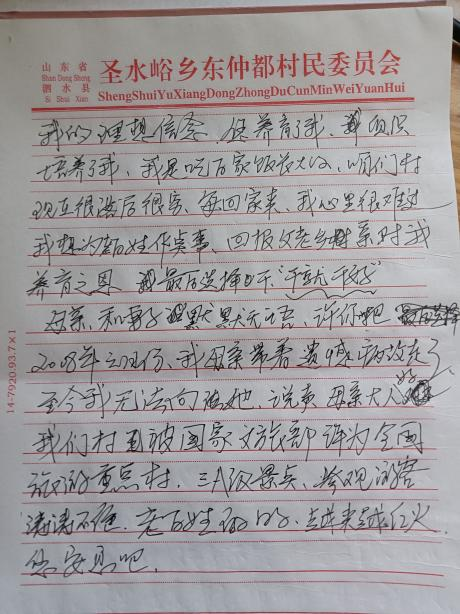 山东省
Shan Dong Sheng
泗水县
Si Shui Xian
圣水峪乡东仲都村民委员会
ShengShuiYuXiangDongZhongDuCunMinWeiYuanHui
我的理想信念,是养育了我,组织
培养了我,我是吃百家饭长大的,咱们村
现在很落后很穷,每回家来,我心里很难过
我想为百姓作点事,回报父老乡亲对我
养育之恩 我最后选择了"干就干好"
母亲,和妻子默默无语,许你吧
2008年 月份,我母亲带着遗憾病故在了
至今我无法向她,说声母亲大人
我们村已被国家文旅部评为全国
旅游重点村,三A级景点,参观游客
涛涛不绝,老百姓的日的,越来越红火
您安息吧,
14-7920.93.7×1